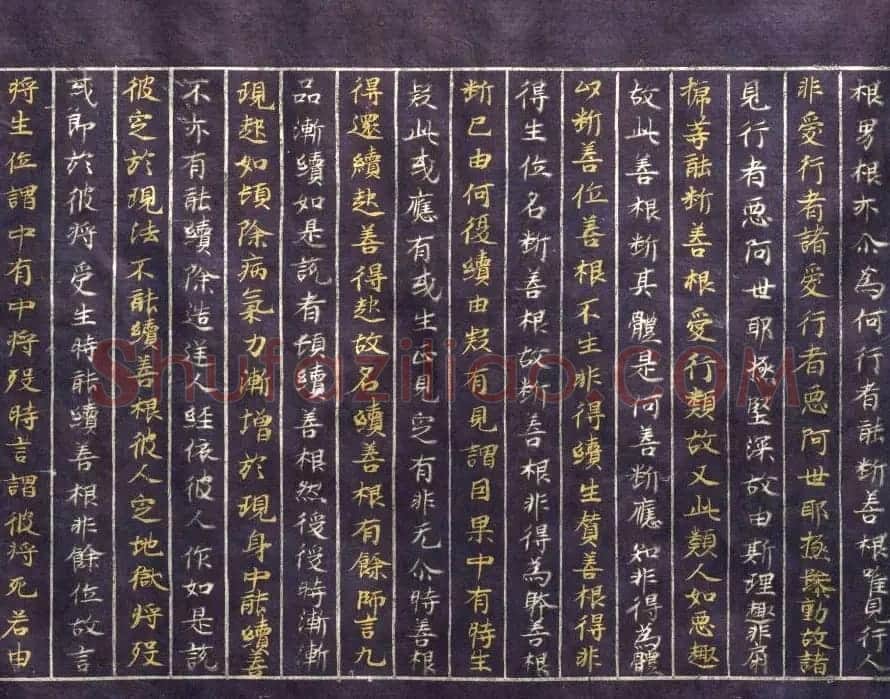 根男根亦尒為何行者能断善根唯見行人
非愛行者諸愛行者惡阿世耶極躁動故諸
見行者惡阿世耶極堅深故由斯理趣非扇
搋等能断善根愛行類故又此類人如惡趣
故此善根断其體是何善断應知非得為體
以断善位善根不生非得續生替善根得非
得生位名断善根故断善根非得為躰善根
断已由何復續由疑有見謂因果中有時生
疑此或應有或生正見定有非无尒時善根
得還續起善得起故名續善根有餘師言九
品漸續如是說者頓續善根然後後時漸漸
現起如頓除病氣力漸增於現身中能續善
不亦有能續除造逆人經依彼人作如是說
彼定於現法不能續善根彼人定地獄將歿
或即於彼將受生時能續善根非餘位故言
將生位謂中有中將歿時言謂彼將死若由
Shufaziliao.com